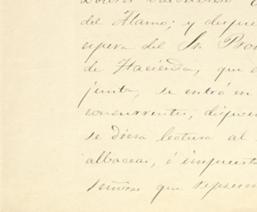 del Alamo; y despue
espera del Sr. Pro
de Hacienda, que e
junta, se entró en
concurrentes, dispon
se diera lectura al
albaceas, é impuest
señores que represen